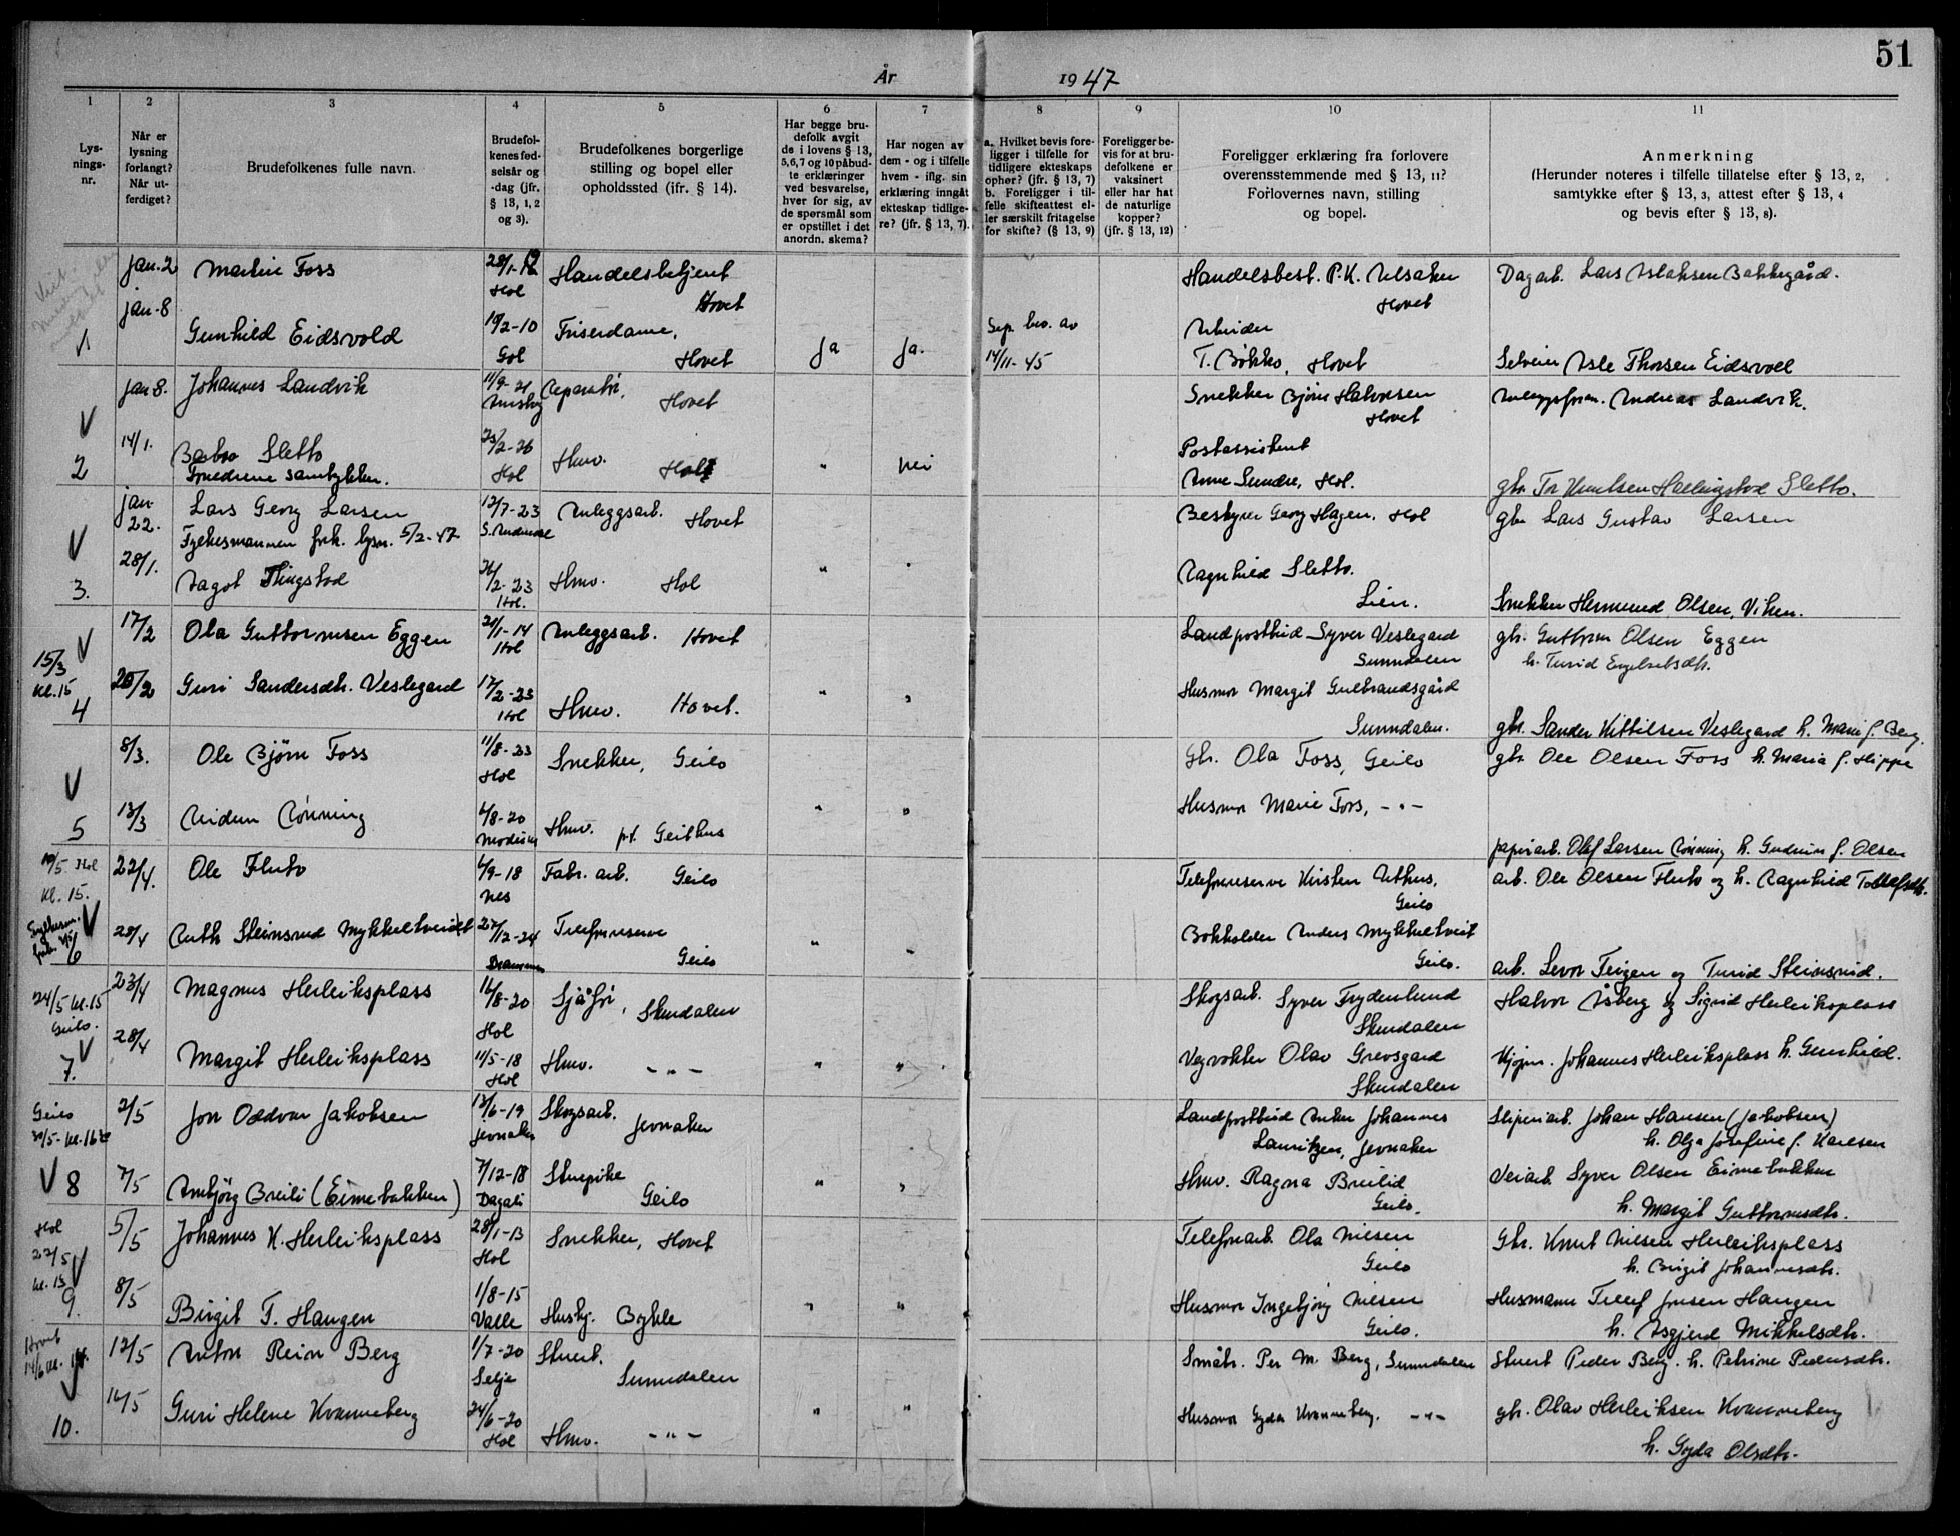 51
År 1947
1 2 3 4 5 6 7 8 9 10 11
Lys-
nings-
nr.
Når er
lysning
forlangt?
Når ut-
ferdiget?
Brudefolkenes fulle navn.
Brudefol-
kenes fød-
selsår og
-dag (jfr.
§ 13, 1, 2
og 3).
Brudefolkenes borgerlige
stilling og bopel eller
opholdssted (jfr. § 14).
Har begge bru-
defolk avgit
de i lovens § 13,
5,6,7 og 10 påbud-
te erklæringer
ved besvarelse,
hver for sig, av
de spørsmål som
er opstillet i det
anordn. skema?
Har nogen av
dem - og i tilfelle
hvem - iflg. sin
erklæring inngåt
ekteskap tidlige-
re? (jfr. § 13, 7).
a. Hvilket bevis fore-
ligger i tilfelle for
tidligere ekteskaps
ophør? (jfr. § 13, 7)
b. Foreligger i til-
felle skifteattest el-
ler særskilt fritagelse
for skifte? (§ 13, 9)
Foreligger be-
vis for at bru-
defolkene er
vaksinert
eller har hat
de naturlige
kopper?
(jfr. § 13, 12)
Foreligger erklæring fra forlovere
overensstemmende med § 13, 11?
Forlovernes navn, stilling
og bopel.
Anmerkning
(Herunder noteres i tilfelle tillatelse efter § 13, 2,
samtykke efter § 13, 3, attest efter § 13, 4
og bevis efter § 13, 8).
jan. 2 Foss 28/1- Hol Handelsbetjent Hovet Handelsbest. P.K. Ulsaker Hovet Dagarb. Lars Islaksen Bakkegård.
1 jan-8 Gunhild Eidsvold 19/2-10 Gol Friserdame, Hovet Ja Ja. Sep. bev. av 14/11-45 Arbeider T. Bøkko, Hovet Selveier Asle Thorsen Eidsvoll
jan 8. Johannes Landvik 11/9-21 Reparatør, Hovet Snekker Bjørn Halvorsen Hovet Andreas Landvik.
2 14/1. Barbro Sletto 23/2-26 Hol Hmv. Hol " nei Postassistent Anne Sundre, Hol. gbr. Tor Knutsen Hallingstad Sletto.
Foreldrene samtykker.
jan- 22. Lars Georg Larsen 12/7-23 Anleggsarb. Hovet Bestyrer Georg Hagen, Hol gbr Lars Gustav Larsen
Fylkesmannen fork. lysn. 5/2-47
3. 28/1. Aagot Tingstad 26/2-23 Hol. Hmv. Hol " Ragnhild Sletto. Lien. Snekker Hermund Olsen, Viken.
17/2 Ola Guttormsen Eggen 20/1-14 Hol Anleggsarb. Hovet Landpostbud Syver Veslegard Sunndalen gbr. Guttorm Olsen Eggen
15/3 kl. 15
4 20/2 Guri Sandersdtr. Veslegard 17/2-23 Hol Hmv. Hovet. " " Husmor Margit Gulbrandsgård Sunndalen. gbr. Sander Kittilsen Veslegard h. Marie f. Berg.
8/3. Ole Bjørn Foss 11/8-23 Hol Snekker, Geilo Gbr. Ola Foss, Geilo gbr. Ole Olsen Foss h. Maria f. Hippe
5 13/3 Reidun Rønning 4/8-20 Modum Hmv. p.t. Geithus " " Husmor Marie Foss, -"- papirarb. Olaf Larsen Rønning h. Gudrun f. Olsen
19/5 Hol kl. 15.
22/4. Ole Fluto 4/9-18 Nes Fabr. arb. Geilo Telefonreserve Kirsten Uthus, Geilo arb. Ole Olsen Fluto og h. Ragnhild Tollefsdtr.
6 28/4 Ruth Steinsrud Mykkeltveidt 27/12-24 Drammen Telefonreserve Geilo " " Bokholder Anders Mykkeltveit Geilo. arb. Levor Teigen og Turid Steinsrud.
24/5 kl. 15 Geilo.
23/4 Magnus Herleiksplass 16/8-20 Hol Sjåfør, Skurdalen Skogsarb. Syver Frydenlund Skurdalen Halvor Åsberg og Sigrid Herleiksplass
7. 28/4 Margit Herleiksplass 11/5-18 Hol Hmv. -"- " " Vegvokter Olav Grevsgard Skurdalen Kjøpm. Johannes Herleiksplass h. Gunhild.
Geilo
2/5 Jon Oddvar Jakobsen 12/6-19 Jevnaker Skogsarb. Jevnaker Landpostbud Anker Johannes Lauritzen, Jevnaker Sliperiarb. Johan Hansen (Jakobsen) h. Olga Josefine f. Karlsen
8 7/5 Anbjörg Breili (Eimebakken) 7/12-18 Dagali Stuepike Geilo " " Hmv. Ragna Breilid Geilo. Veiarb. Syver Olsen Eimebakken h. Margit Guttormsdtr.
Hol 22/5 kl. 13
5/5 Johannes K. Herleiksplass 28/1-13 Hol Snekker, Hovet Telefonarb. Ola Nilsen Geilo Gbr. Knut Nilsen Herleiksplass h. Birgit Johannesdtr.
9. 8/5 Birgit T. Haugen 1/8-15 Valle Hushj. Bykle " " Husmor Ingebjörg Nilsen Geilo. Husmann Tellef Jonsen Haugen h. Asgjerd Mikkelsdtr.
Hovet 14/6 kl.
12/5 Anton Rein Berg 1/7-20 Selje Stuert. Sunndalen Småbr. Per M. Berg, Sunndalen Stuert Peder Berg. h. Petrine Pedersdtr.
10. 16/5 Guri Helene Kvanneberg 24/6-20 Hol Hmv. -"- " " Husmor Gyda Kvanneberg. -"- gbr. Olav Herleiksen Kvanneberg
h. Gyda Olsdtr.